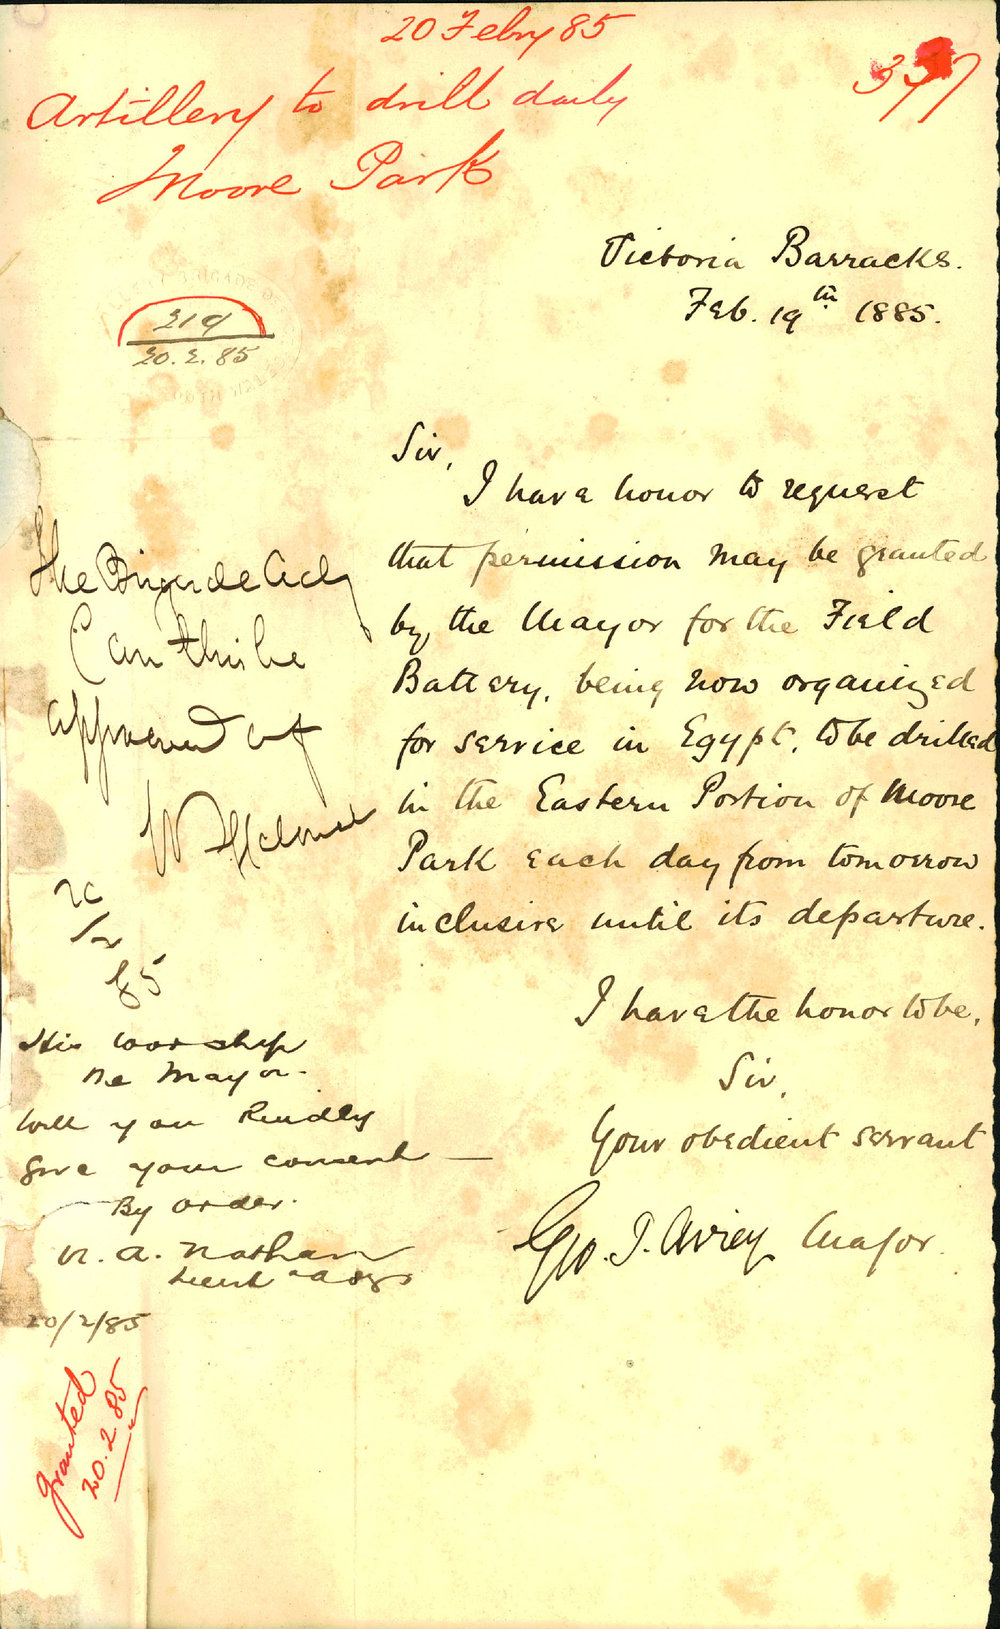 20 Febry 85
Artillery to drill daily
Moore Park
Victoria Barracks.
Feb. 19th 1885.
219
20.2.85
Sir,
I have honor to request
that permission may be granted
by the Mayor for the Field
Battery, being now organized
for service in Egypt, to be drilled
in the Eastern Portion of Moore
Park each day from tomorrow
inclusive until its departure.
I have the honor to be,
Sir,
Your obedient servant
Geo. J. Airey Major.
The Brigade Adj
Can this be
approved of
20
/2
85
His Worship
The Mayor.
Will you kindly
give your consent —
By order.
N. A. Nathan
Lieut & Adj
20/2/85
Granted
20.2.85